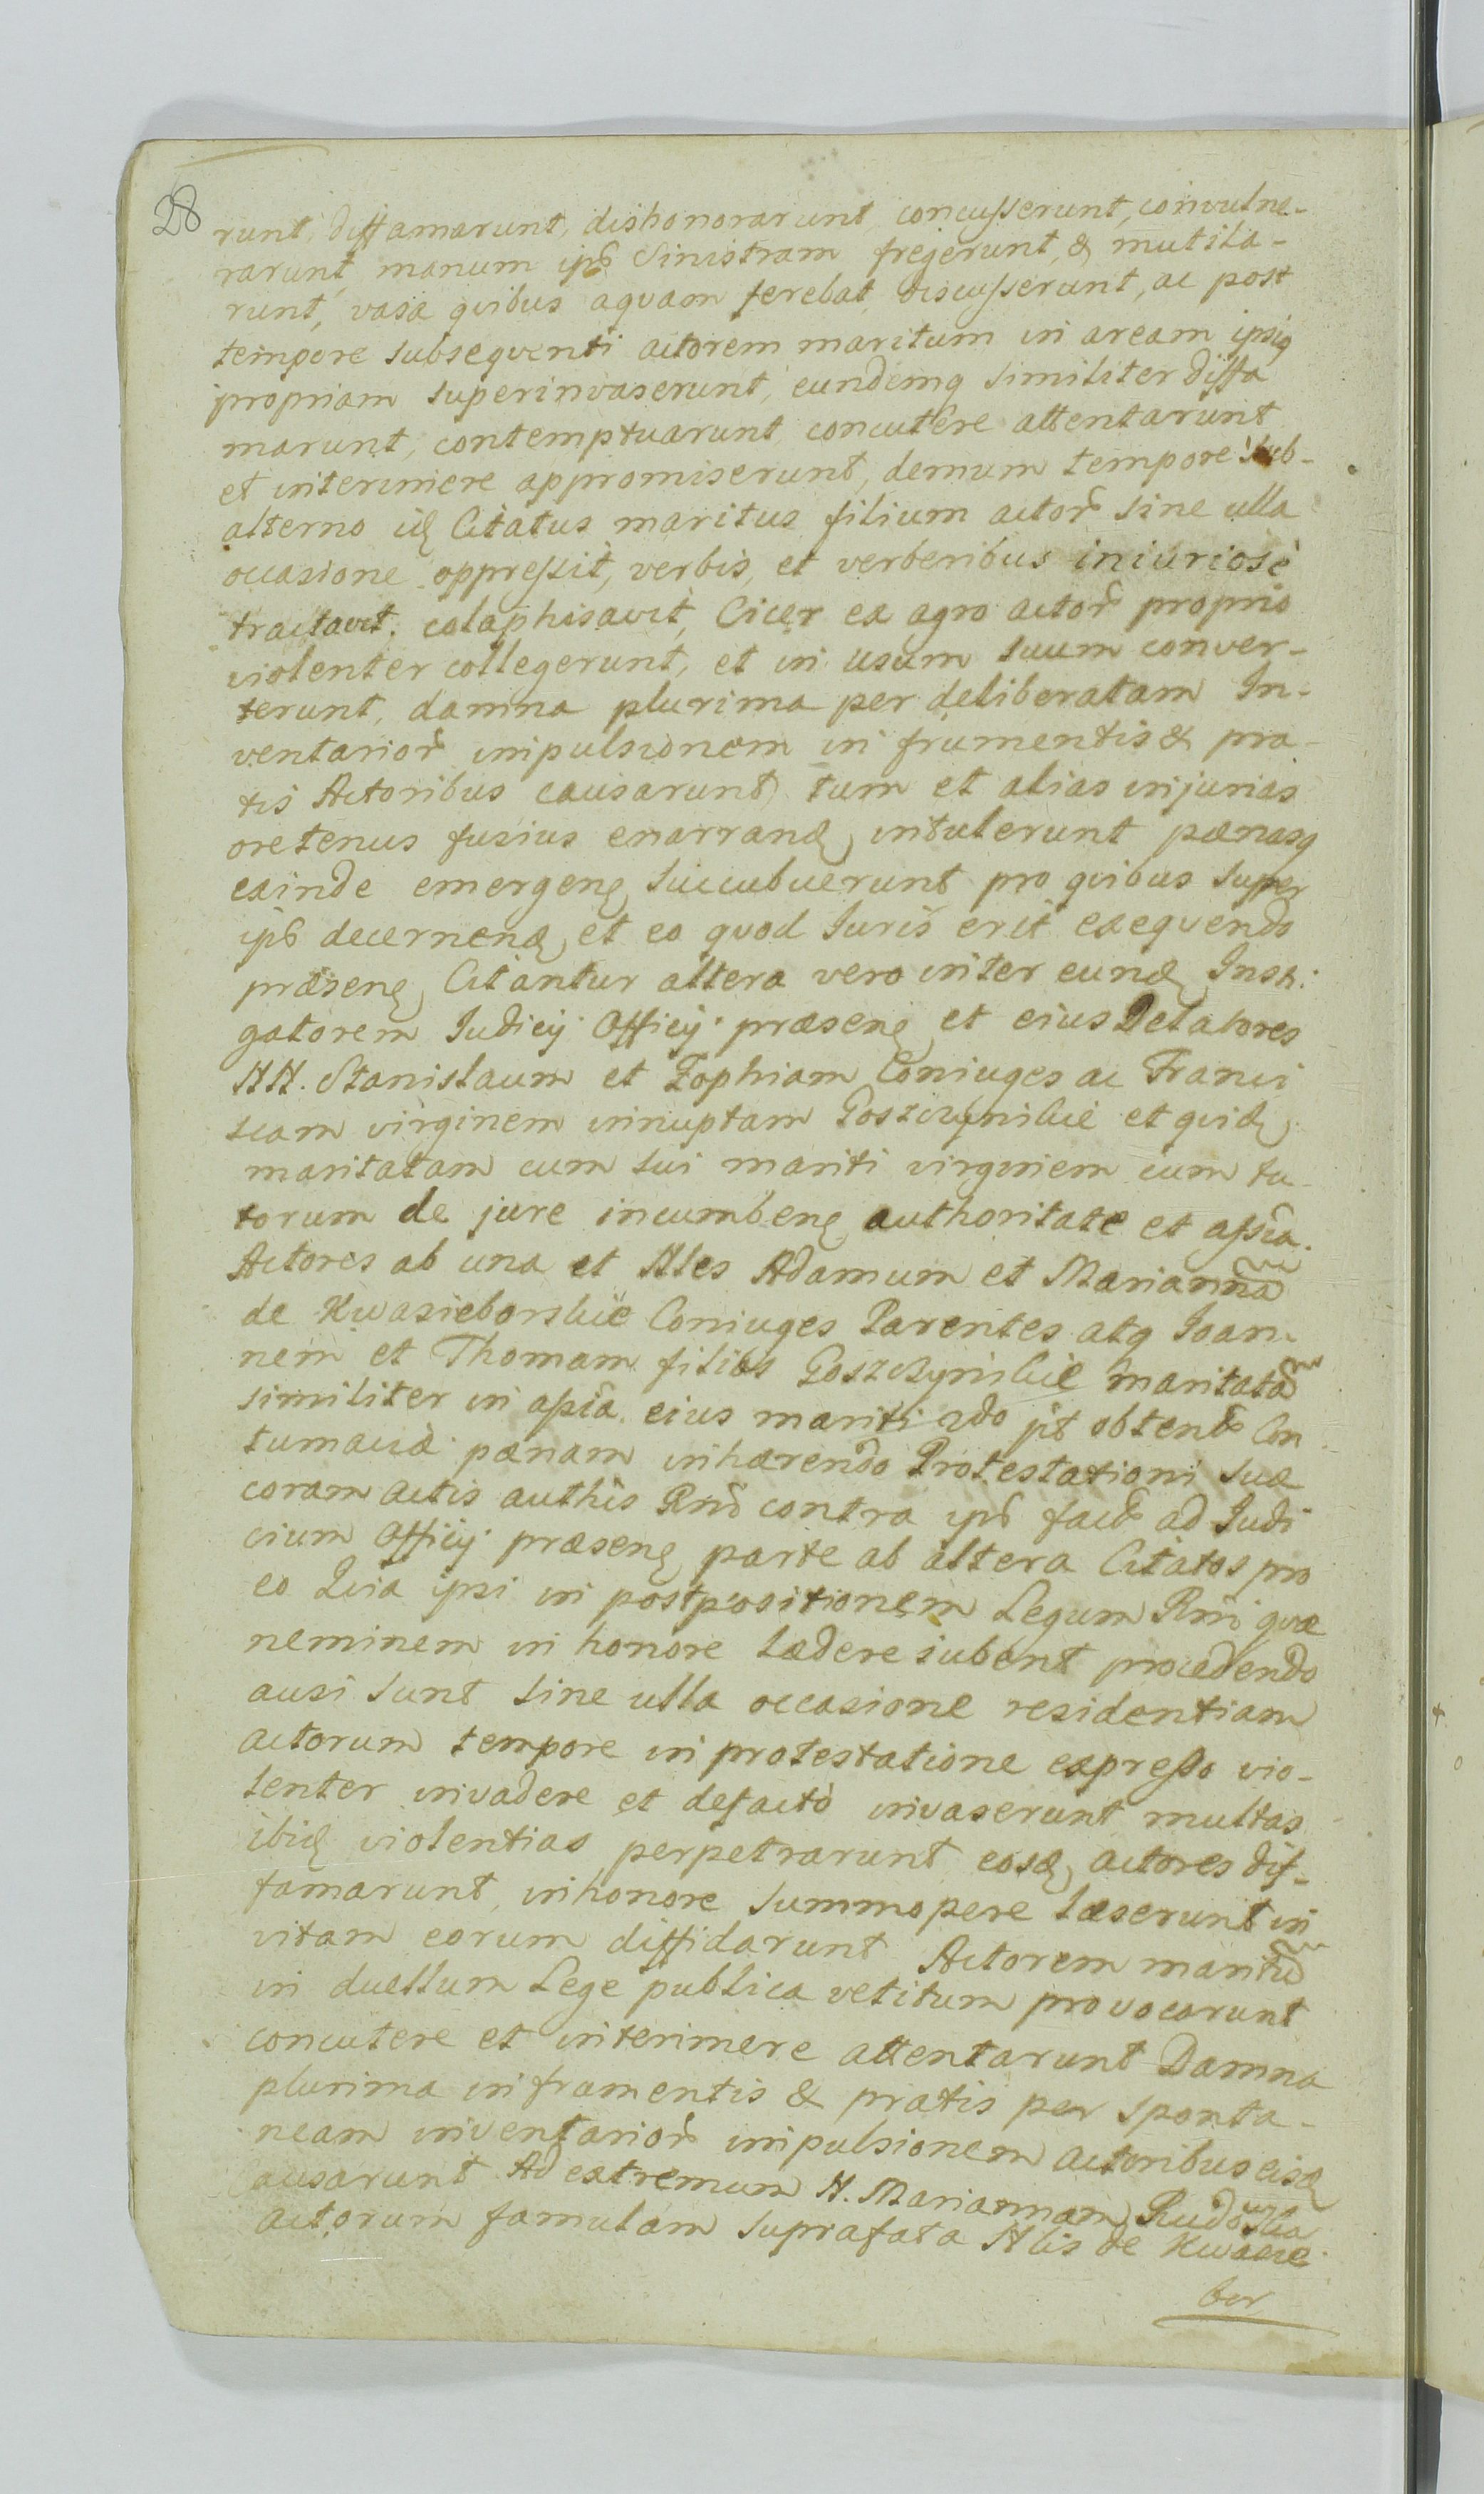 28
runt, diffamarunt, dishonorarunt concusserunt, convulne-
rarunt, manum ips sinistram fregerunt, & mutila-
runt, vasa quibus aquam ferebat discusserunt, ac post
tempore subsequenti actorem maritum in aream ipsiq
propriam superinvaserunt, eundemq similiter diffa
marunt, contemptuarunt concutere attentarunt
et interimere appromiserunt, demum tempore sub-
alterno id Citatus maritus filium actor sine ulla
occasione oppressit, verbis, et verberibus iniuriosè
tractavit. colaphisavit, Cicer ex agro actor proprio
violenter collegerunt, et in usum suum conver-
terunt, damna plurima per deliberatam In-
ventarior impulsionem in frumentis & pra-
tis Actoribus causarunt tum et alias injurias
oretenus fusius enarrand intulerunt pænasq
exinde emergen succubuerunt pro quibus super
ips decernend et eo quod Iuris erit exequendo
præsen Citantur altera vero inter eund Insti:
gatorem Iudicij Officij præsen et eius Delatores
NN. Stanislaum et Zophiam Coniuges ac Franci
scam virginem innuptam Goszczynskie et quid
maritatam cum sui mariti virginem cum tu-
torum de jure incumben authoritate et assia.
Actores ab una et Nles Adamum et Marianna
de Kwasieborskie Coniuges Parentes atq Ioan-
nem et Thomam filios Goszczynskie maritata
similiter in assia eius mariti rdo pt obtent Con
tumaciæ pænam inhærendo Protestationi suæ
coram actis authis Rnd contra ips fact ad Iudi
cium Officij præsen parte ab altera Citatos pro
eo Quia ipsi in postpositionem Legum Rni quæ
neminem in honore lædere iubent procedendo
ausi sunt sine ulla occasione residentiam
actorum tempore in protestatione expresso vio-
lenter invadere et defactò invaserunt multas
ibid violentias perpetrarunt eosd actores dif-
famarunt, in honore summopere læserunt in
vitam eorum diffidarunt Actorem maritu
in duellum Lege publica vetitum provocarunt
concutere et interimere attentarunt Damna
plurima in framentis & pratis per sponta-
neam inventarior impulsionem actoribus eisd
causarunt Ad extremum N. Mariannam
actorum famulam suprafata Nlis de Kwasie
bor